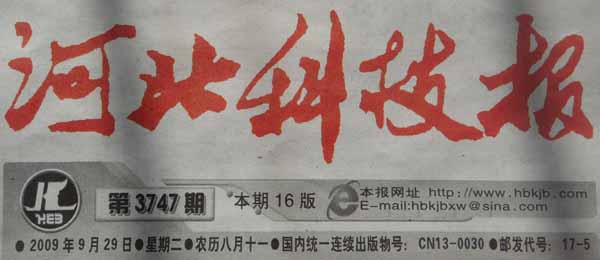 河北科技报
HEB
第3747期
本期16版
本报网址 http://www.hbkjb.com
E-mail:hbkjbxw@sina.com
●2009年9月29日●星期二●农历八月十一●国内统一连续出版物号：CN13-0030●邮发代号：17-5